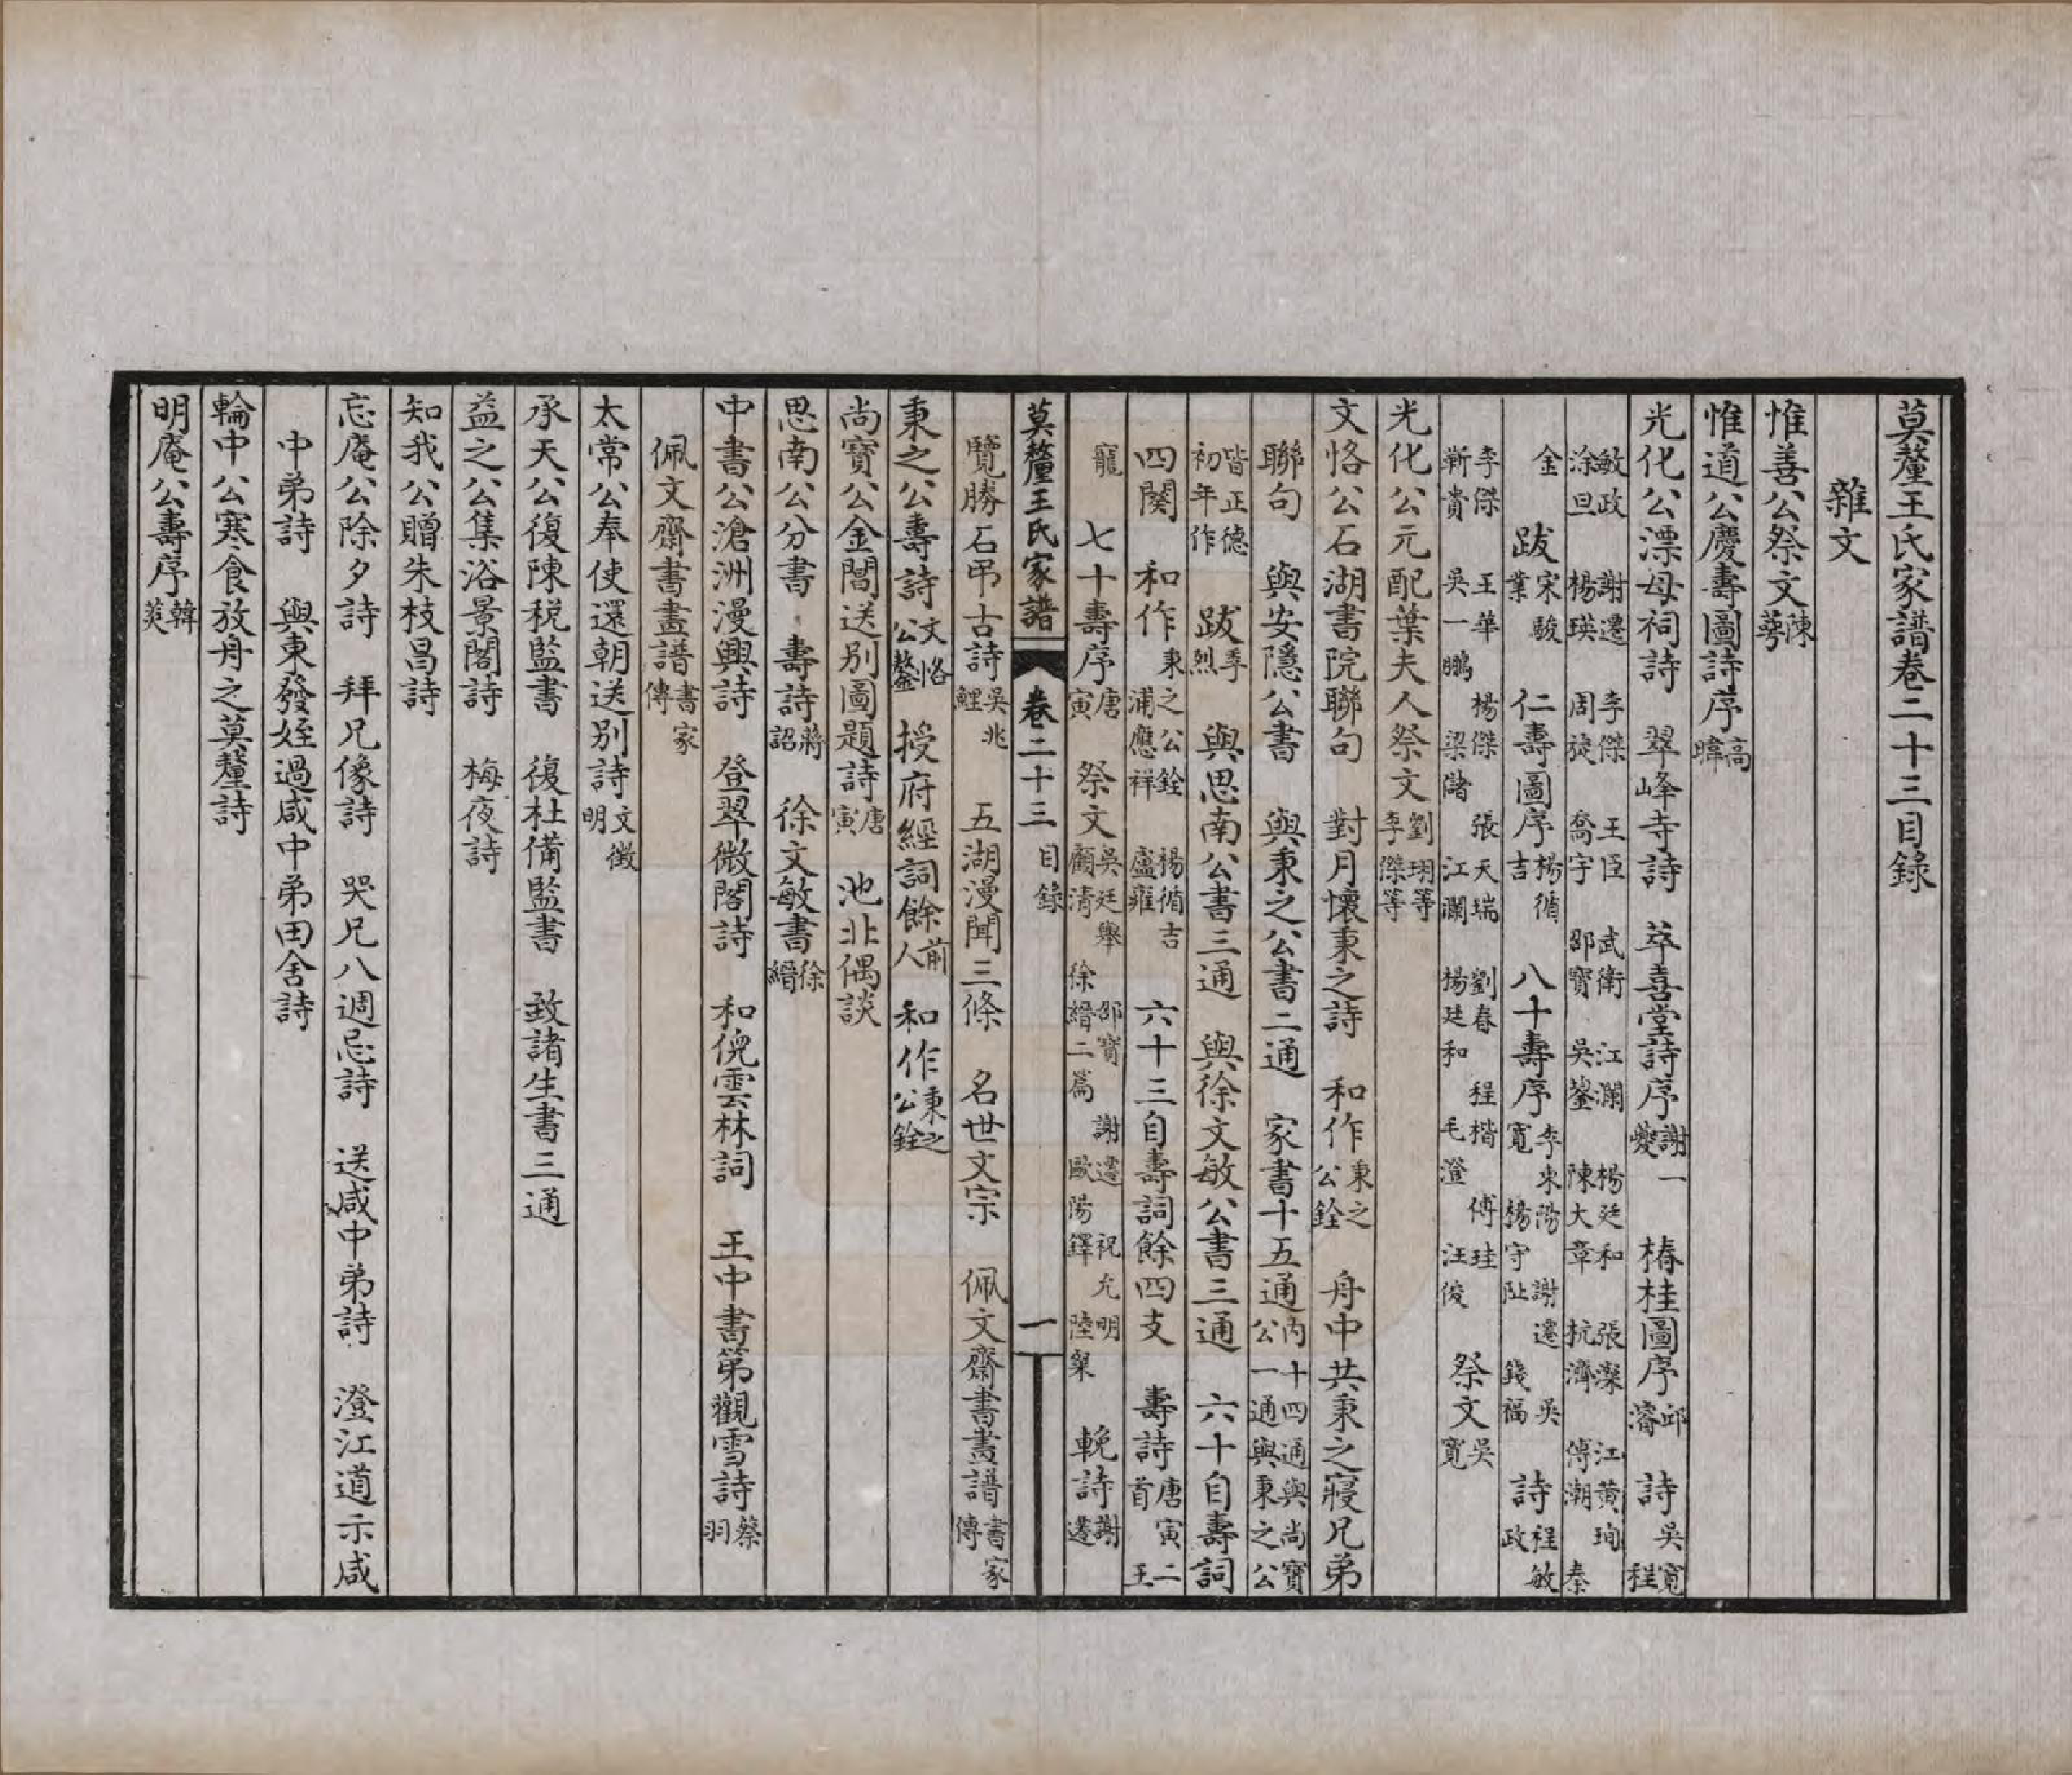 莫釐王氏家譜卷二十三目錄
雜文
惟善公祭文陳蕚
惟道公慶壽圖詩序高暐
光化公漂母祠詩 翠峰寺詩 萃喜堂詩序謝一夔 椿桂圖序邱濬 詩吳寬 程
敏政 謝遷 李傑 王臣 武衛 江瀾 楊廷和 張濴 江黃珣
涂旦 楊瑛 周旋 喬宇 邵寶 吳鋆 陳大章 杭濟 傅潮 秦
金 跋宋駿業 仁壽圖序楊循吉 八十壽序李東陽 謝遷 吳寬 楊守阯 錢福 詩程敏政
李傑 王華 楊傑 張天瑞 劉春 程楷 傅珪
靳貴 吳一鵬 梁儲 江瀾 楊廷和 毛澄 汪俊 祭文吳寬
光化公元配葉夫人祭文劉珝等 李傑等
文恪公石湖書院聯句 對月懷秉之詩 和作秉之公銓 舟中共秉之寢兄弟
聯句 與安隱公書 與秉之公書二通 家書十五通內十四通與尚寶公一通與秉之公
皆正德初年作 跋季烈 與思南公書三通 與徐文敏公書三通 六十自壽詞
四闋 和作秉之公銓 楊循吉 浦應祥 盧雍 六十三自壽詞餘四支 壽詩唐寅二首 王
寵 七十壽序唐寅 祭文吳廷舉 邵寶 謝遷 祝允明 顧清 徐縉二篇 歐陽鐸 陸粲 輓詩謝遷
莫釐王氏家譜 卷二十三 目錄 一
覽勝石弔古詩吳兆鯉 五湖漫聞三條 名世文宗 佩文齋書畫譜書家傳
秉之公壽詩文恪公鏊 授府經詞餘前人 和作秉之公銓
尚寶公金閶送別圖題詩唐寅 池北偶談
思南公分書 壽詩蔣詔 徐文敏書徐縉
中書公滄洲漫興詩 登翠微閣詩 和倪雲林詞 王中書第觀雪詩蔡羽
佩文齋書畫譜書家傳
太常公奉使還朝送別詩文徵明
承天公復陳稅監書 復杜備監書 致諸生書三通
益之公集浴景閣詩 梅夜詩
知我公贈朱枝昌詩
忘庵公除夕詩 拜兄像詩 哭兄八週忌詩 送咸中弟詩 澄江道示咸
中弟詩 與東發姪過咸中弟田舍詩
輪中公寒食放舟之莫釐詩
明庵公壽序韓菼